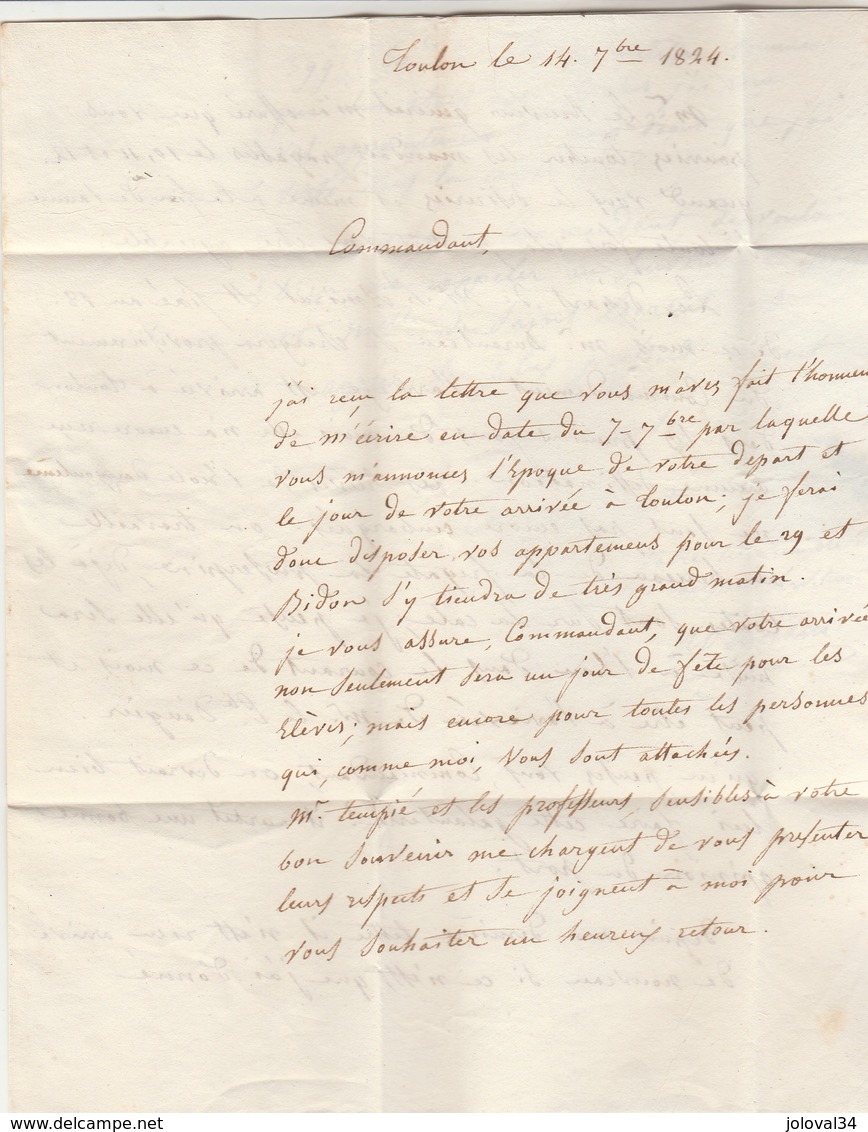 Toulon le 14. 7bre 1824.
Commandant,
j'ai reçu la lettre que vous m'avez fait l'honneur
de m'écrire en date du 7-7bre par laquelle
vous m'annoncez l'Epoque de votre départ et
le jour de votre arrivée à Toulon; je ferai
donc disposer vos appartemens pour le 29 et
Bidon s'y tiendra de très grand matin.
je vous assure, Commandant, que votre arrivée
non seulement sera un jour de fête pour les
Elèves; mais encore pour toutes les personnes
qui, comme moi, vous sont attachées.
Mr. tempié et les professeurs, sensibles à votre
bon souvenir me chargent de vous présenter
leurs respects et se joignent à moi pour
vous souhaiter un heureux retour.
www.delcampe.net
joloval34